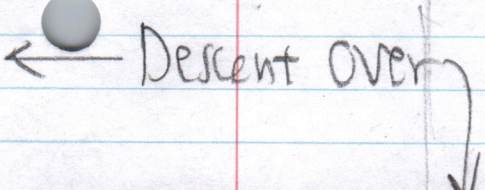 Descent over